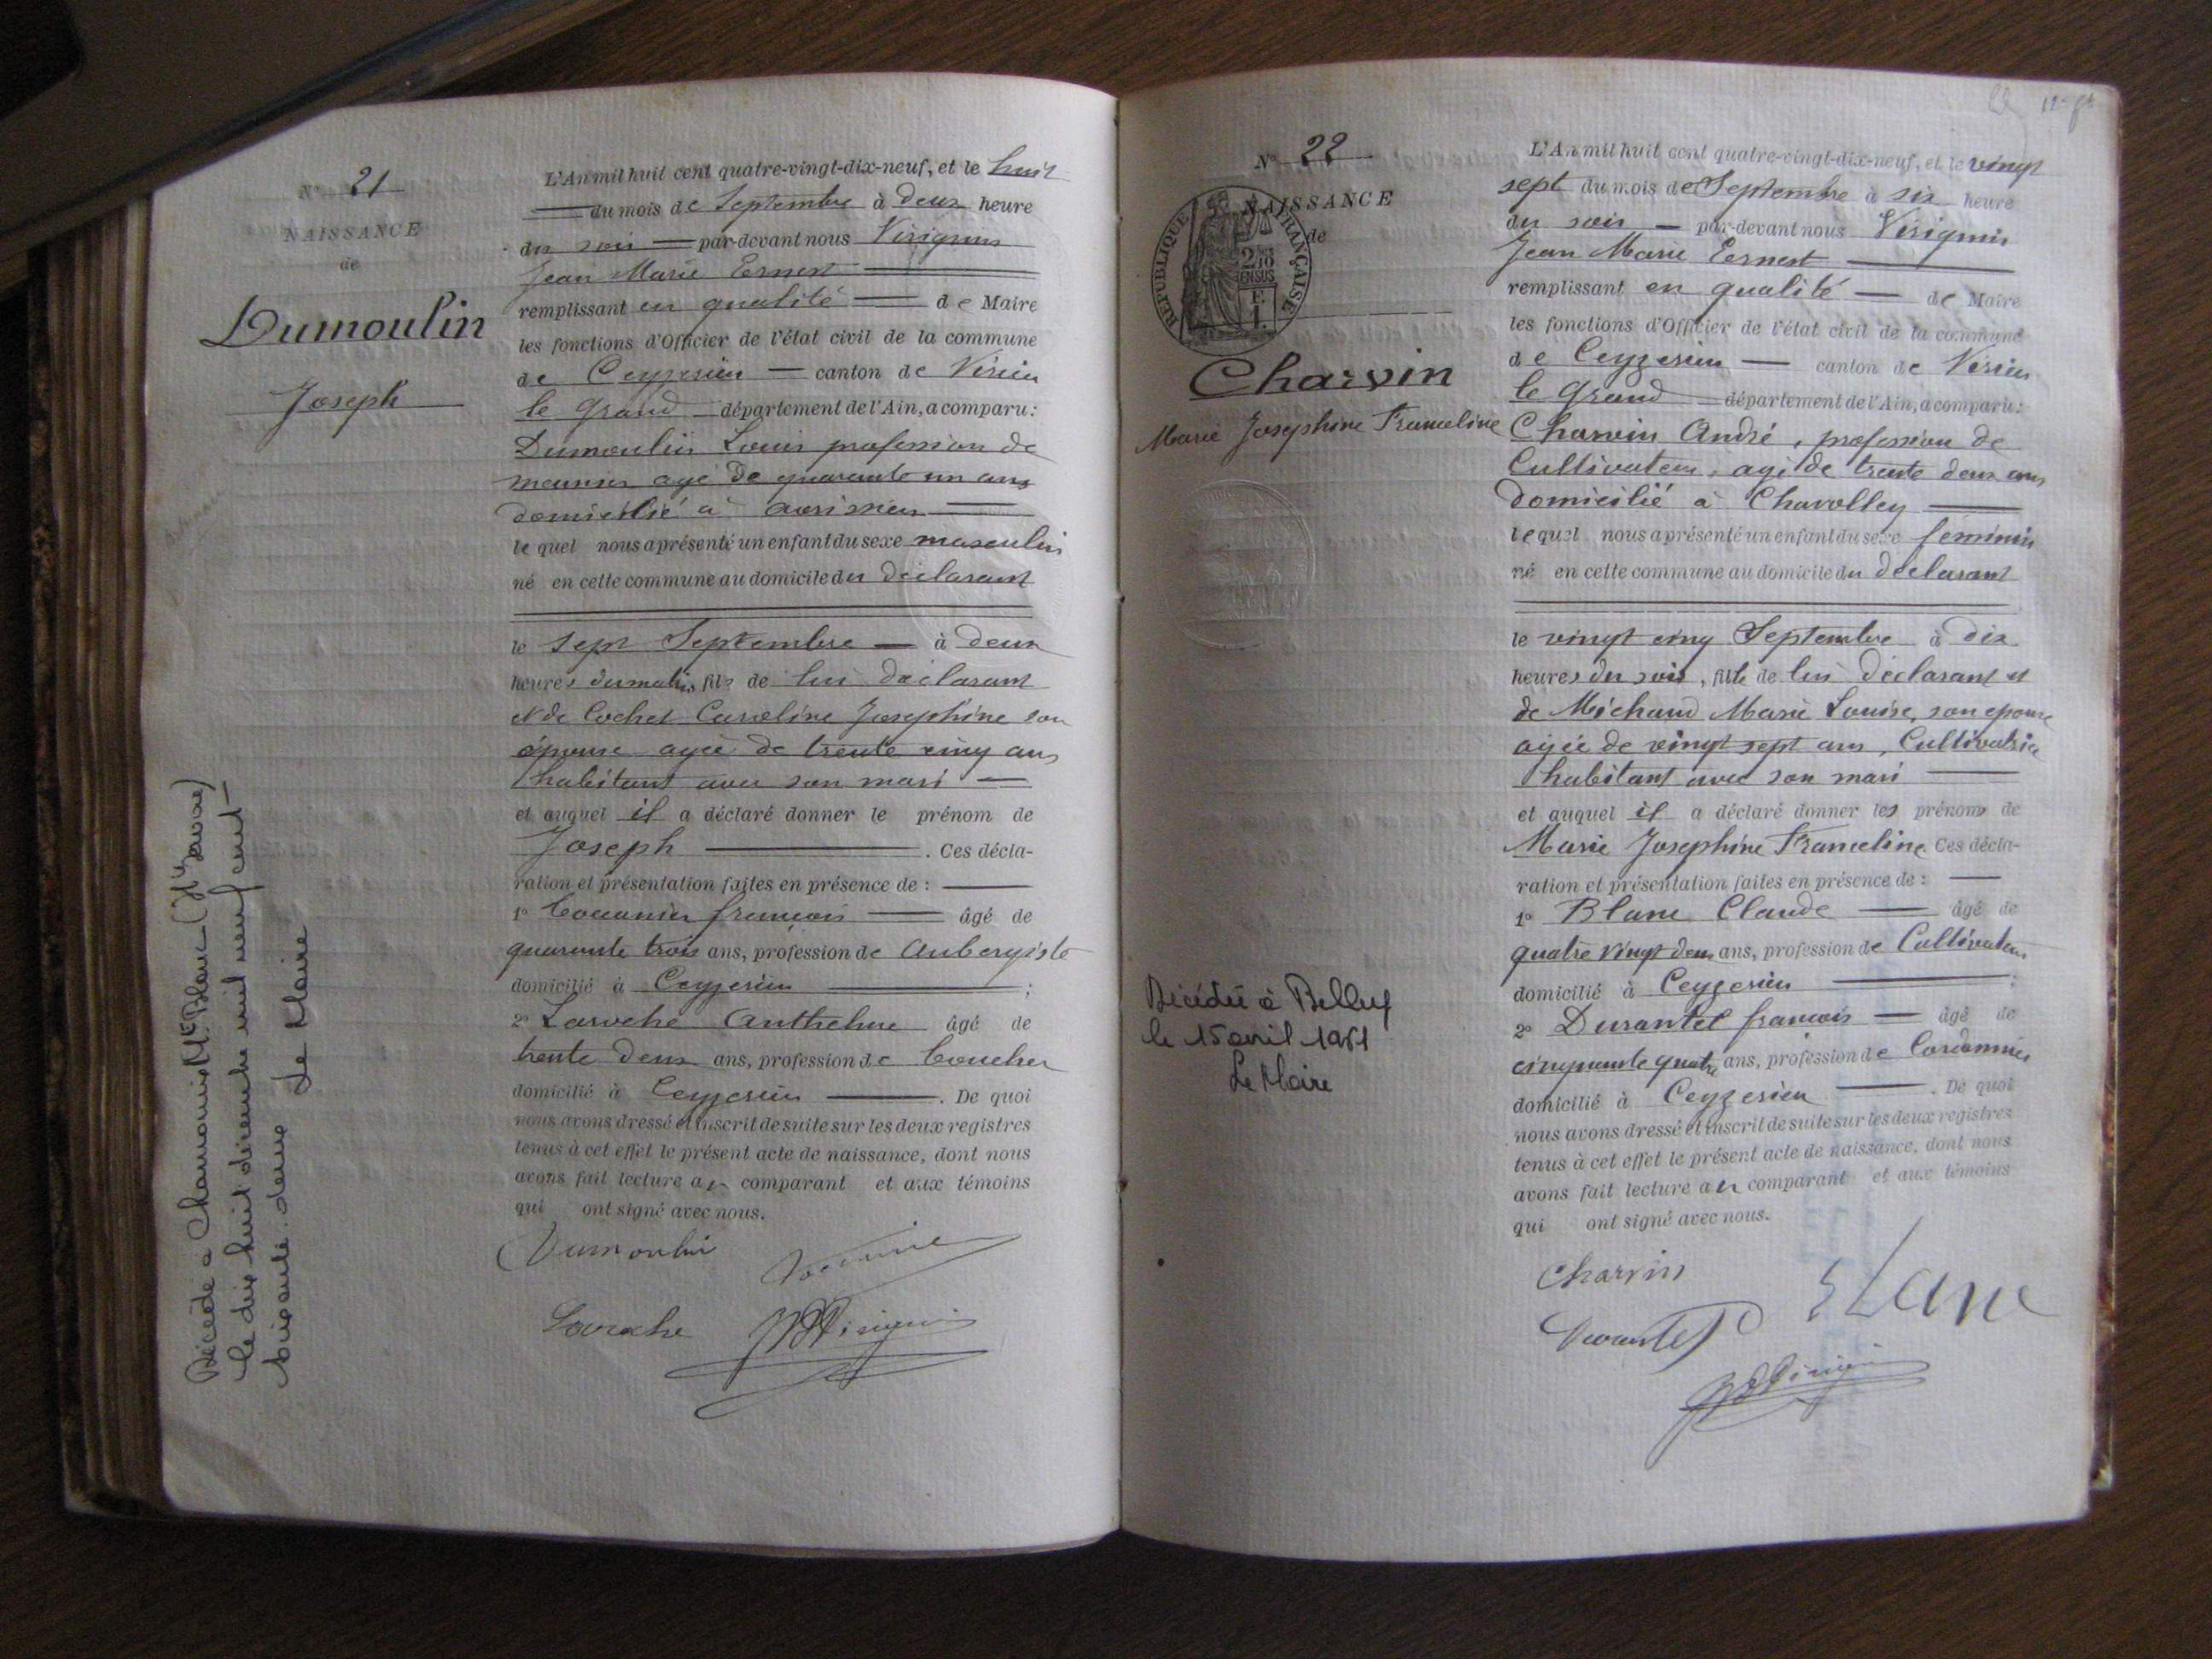 N° 21
NAISSANCE
de
Dumoulin
Joseph
L'An mil huit cent quatre-vingt-dix-neuf, et le huit
du mois de Septembre à deux heure
du soir par-devant nous Virignin
Jean Marie Ernest
remplissant en qualité de Maire
les fonctions d'Officier de l'état civil de la commune
de Ceyzerieu canton de Virieu
le Grand département de l'Ain, a comparu :
Dumoulin Louis profession de
meunier agé de quarante un ans
domicilié à
le quel nous a présenté un enfant du sexe masculin
né en cette commune au domicile du déclarant
le sept Septembre à deux
heures du matin, fils de lui déclarant
et de Cochet Caroline Josephine son
épouse agée de trente cinq ans
habitant avec son mari
et auquel il a déclaré donner le prénom de
Joseph . Ces décla-
ration et présentation faites en présence de :
1° françois âgé de
quarante trois ans, profession de Aubergiste
domicilié à Ceyzerieu ;
2° Laroche Anthelme âgé de
trente deux ans, profession de boucher
domicilié à Ceyzerieu . De quoi
nous avons dressé et inscrit de suite sur les deux registres
tenus à cet effet le présent acte de naissance, dont nous
avons fait lecture au comparant et aux témoins
qui ont signé avec nous.
Dumoulin
Laroche
Décédé à Chamonix Mt Blanc (Hte Savoie)
le dix huit décembre mil neuf cent
soixante deux Le Maire
N° 22
NAISSANCE
de
REPUBLIQUE FRANÇAISE
Charvin
Marie Josephine Franceline
Décédée à Belley
le 15 avril 1981
Le Maire
L'An mil huit cent quatre-vingt-dix-neuf, et le vingt
sept du mois de Septembre à six heure
du soir par-devant nous Virignin
Jean Marie Ernest
remplissant en qualité de Maire
les fonctions d'Officier de l'état civil de la commune
de Ceyzerieu canton de Virieu
le Grand département de l'Ain, a comparu :
Charvin André, profession de
Cultivateur, agé de trente deux ans
domicilié à Chavolley
le quel nous a présenté un enfant du sexe féminin
né en cette commune au domicile du déclarant
le vingt cinq Septembre à dix
heures du soir, fille de lui déclarant et
de Michaud Marie Louise, son epouse
agée de vingt sept ans, Cultivatrice
habitant avec son mari
et auquel il a déclaré donner les prénoms de
Marie Josephine Franceline Ces décla-
ration et présentation faites en présence de :
1° Blanc Claude âgé de
quatre vingt deux ans, profession de Cultivateur
domicilié à Ceyzerieu ;
2° Durantet francois âgé de
cinquante quatre ans, profession de Cordonnier
domicilié à Ceyzerieu . De quoi
nous avons dressé et inscrit de suite sur les deux registres
tenus à cet effet le présent acte de naissance, dont nous
avons fait lecture au comparant et aux témoins
qui ont signé avec nous.
Charvin
Blanc
Durantet